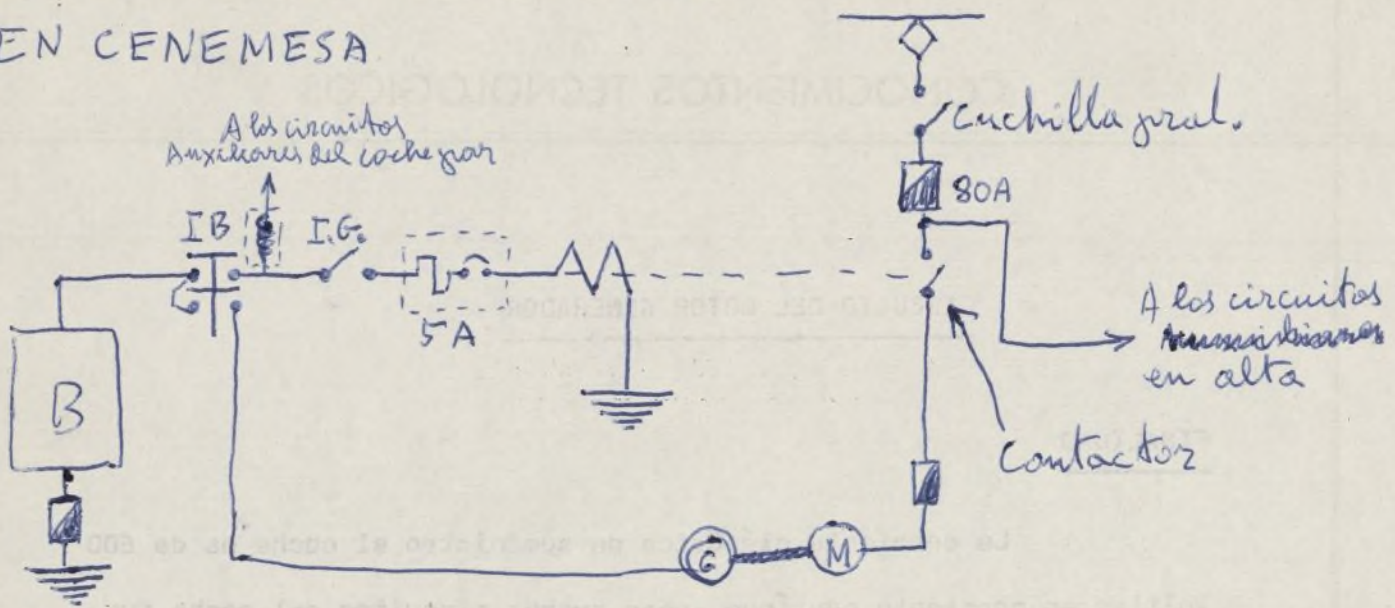 EN CENEMESA
A los circuitos
Auxiliares del coche par
Cuchilla pral.
80A
I B
I.G.
5A
B
A los circuitos
en alta
Contactor
G
M